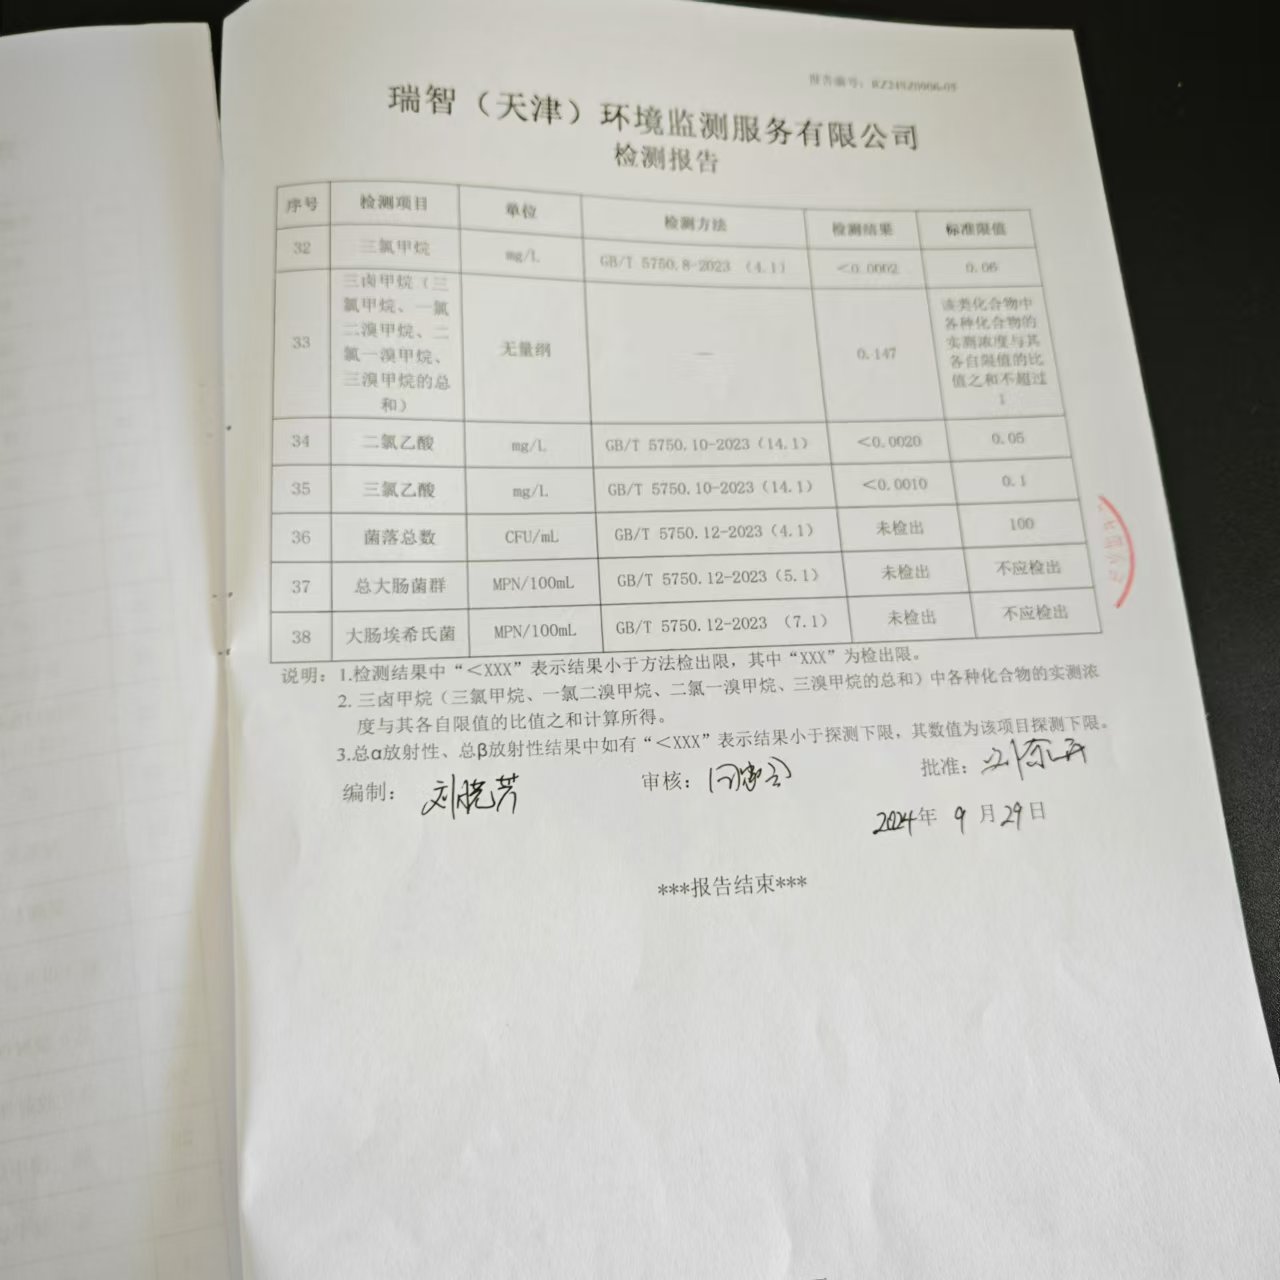 报告编号：RZ249Z0906-05
瑞智（天津）环境监测服务有限公司
检测报告
序号 检测项目 单位 检测方法 检测结果 标准限值
32 三氯甲烷 mg/L GB/T 5750.8-2023 （4.1） <0.0002 0.06
33 三卤甲烷（三氯甲烷、一氯二溴甲烷、二氯一溴甲烷、三溴甲烷的总和） 无量纲 — 0.147 该类化合物中各种化合物的实测浓度与其各自限值的比值之和不超过1
34 二氯乙酸 mg/L GB/T 5750.10-2023（14.1） <0.0020 0.05
35 三氯乙酸 mg/L GB/T 5750.10-2023（14.1） <0.0010 0.1
36 菌落总数 CFU/mL GB/T 5750.12-2023（4.1） 未检出 100
37 总大肠菌群 MPN/100mL GB/T 5750.12-2023（5.1） 未检出 不应检出
38 大肠埃希氏菌 MPN/100mL GB/T 5750.12-2023 （7.1） 未检出 不应检出
说明：1.检测结果中“＜XXX”表示结果小于方法检出限，其中“XXX”为检出限。
2. 三卤甲烷（三氯甲烷、一氯二溴甲烷、二氯一溴甲烷、三溴甲烷的总和）中各种化合物的实测浓
度与其各自限值的比值之和计算所得。
3.总α放射性、总β放射性结果中如有“＜XXX”表示结果小于探测下限，其数值为该项目探测下限。
编制： 刘晓芳 审核： 批准：
2024年 9 月 29 日
***报告结束***